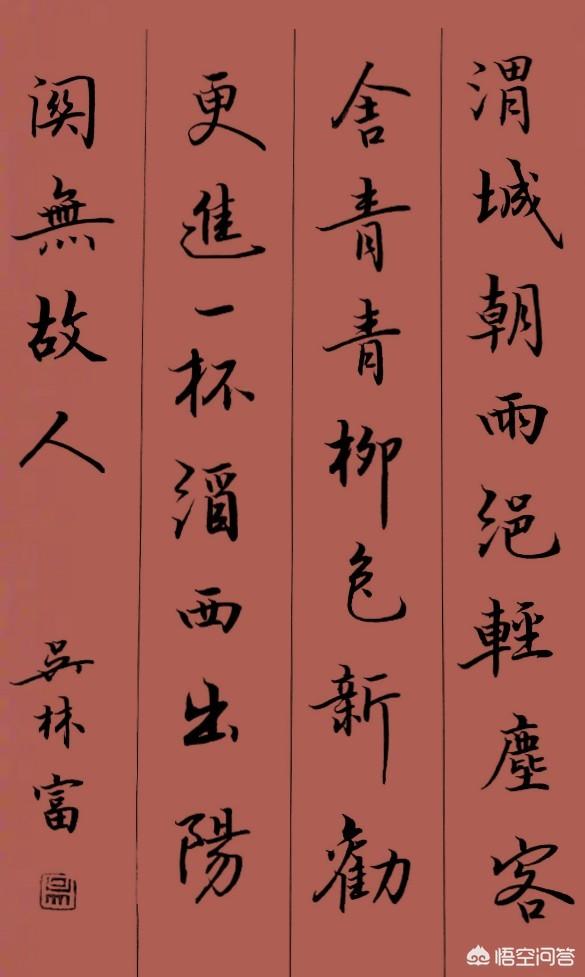 渭城朝雨浥輕塵客
舍青青柳色新勸
更進一杯酒西出陽
関無故人
吴林富
悟空问答